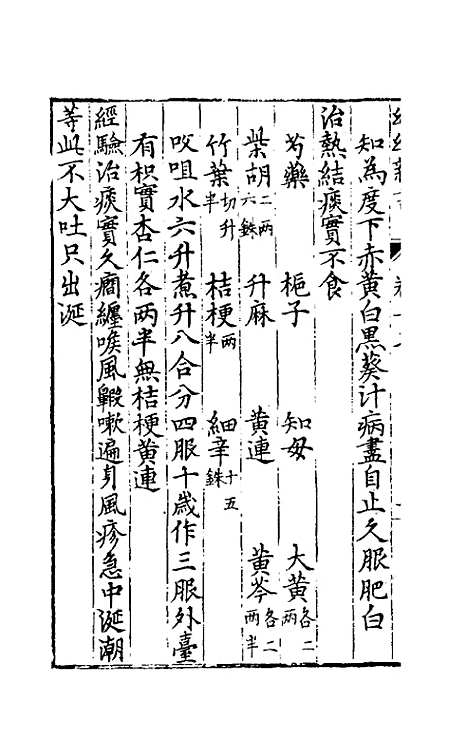 知為度下赤黃白黑葵汁病盡自止久服肥白
治熱結痰實不食
芍藥 梔子 知母 大黃各二兩
柴胡二兩六銖 升麻 黃連 黃芩各二兩半
竹葉切升半 桔梗兩半 細辛十五銖
㕮咀水六升煮升八合分四服十歲作三服外臺
有枳實杏仁各兩半無桔梗黃連
經驗治痰實久癎纏喉風齁嗽遍身風疹急中涎潮
等此不大吐只出涎